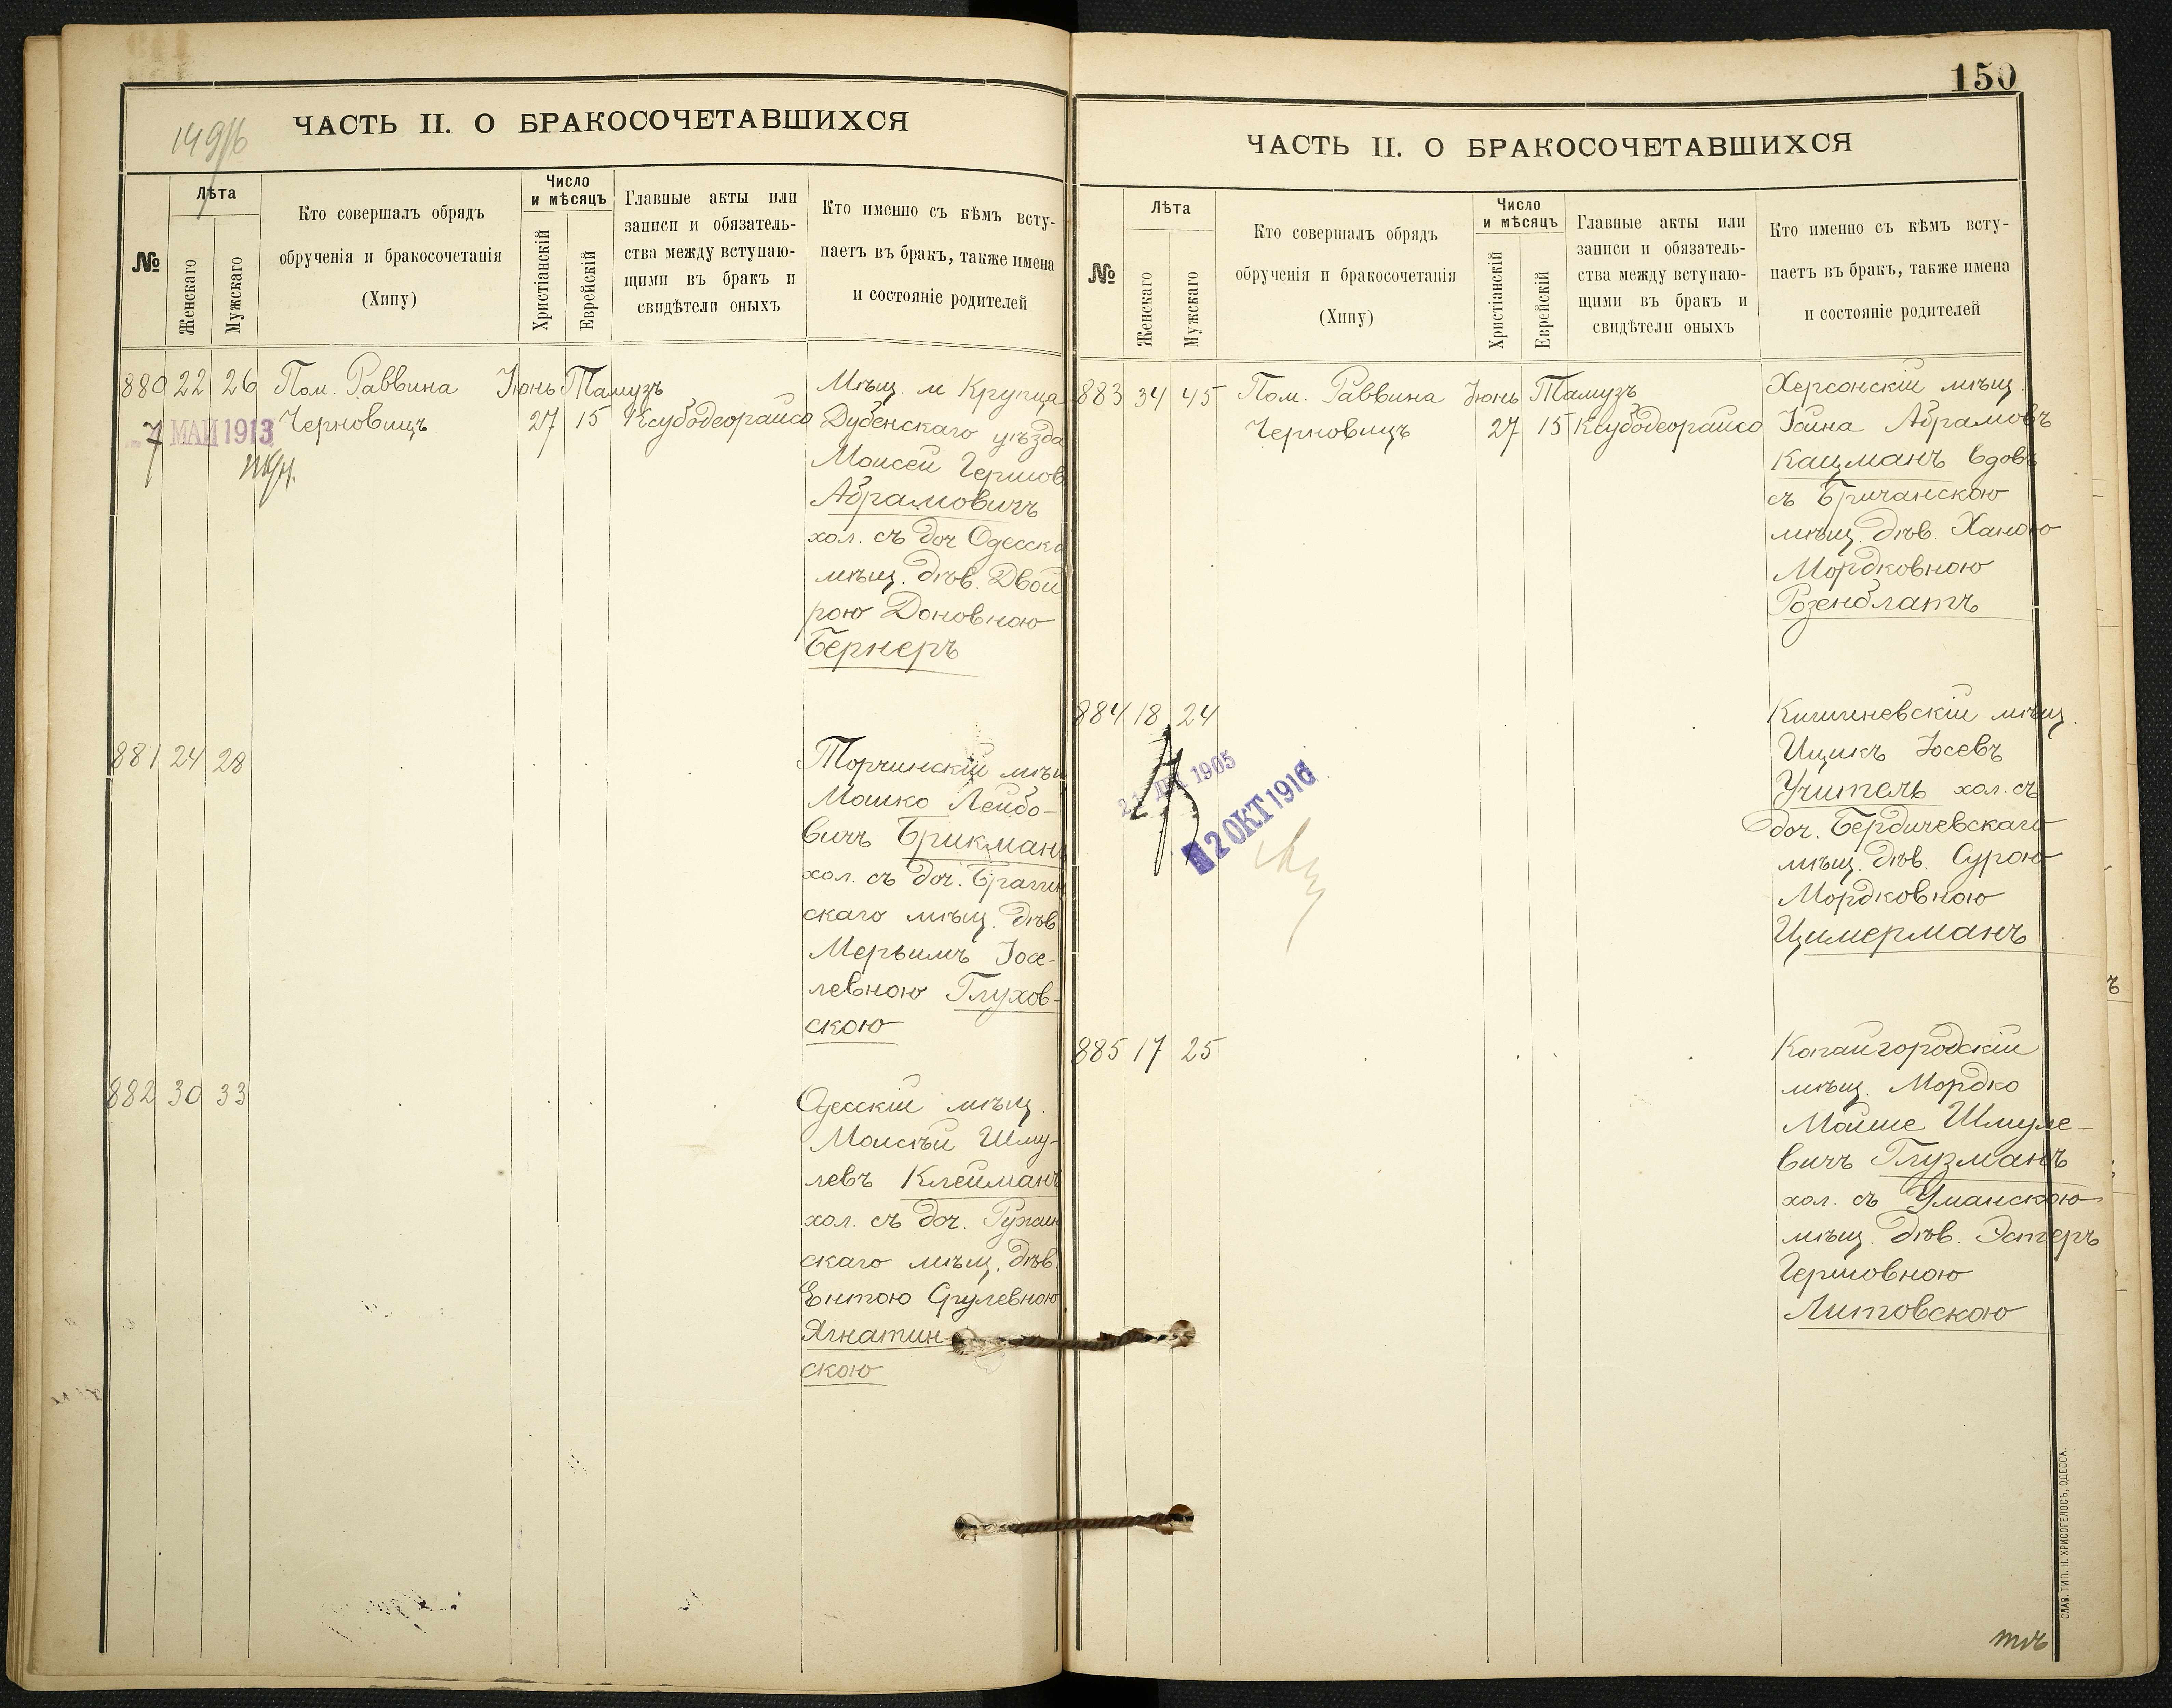 149/б
ЧАСТЬ II. О БРАКОСОЧЕТАВШИХСЯ
№
Лѣта
Женскаго
Мужскаго
Кто совершалъ обрядъ
обрученія и бракосочетанія
(Хипу)
Число
и мѣсяцъ
Христіанскій
Еврейскій
Главные акты или
записи и обязатель-
ства между вступаю-
щими въ бракъ и
свидѣтели оныхъ
Кто именно съ кѣмъ всту-
паетъ въ бракъ, также имена
и состояніе родителей
880 22 26 Пом. Раввина Іюнь Тамузъ
Черновицъ 27 15 Ксубодеорайсо
7 МАЙ 1913
Мѣщ. м Крупца
Дубенскаго уѣзда
Моисей Гершов
Абрамовичъ
хол. съ доч Одесска
мѣщ. дѣв. Двой
рою Доновною
Бернеръ
881 24 28
Торчинскій мѣщ
Мошко Лейбо-
вичъ Брикманъ
хол. съ доч. Брагин
скаго мѣщ. дѣв.
Мерьимъ Іосе-
левною Глухов-
скою
882 30 33
Одесскій мѣщ.
Моисѣй Шму-
левъ Клейманъ
хол. съ доч. Ружин
скаго мѣщ. дѣв.
Ентою Срулевною
Ягнатин-
скою
150
ЧАСТЬ II. О БРАКОСОЧЕТАВШИХСЯ
№
Лѣта
Женскаго
Мужскаго
Кто совершалъ обрядъ
обрученія и бракосочетанія
(Хипу)
Число
и мѣсяцъ
Христіанскій
Еврейскій
Главные акты или
записи и обязатель-
ства между вступаю-
щими въ бракъ и
свидѣтели оныхъ
Кто именно съ кѣмъ всту-
паетъ въ бракъ, также имена
и состояніе родителей
883 34 45 Пом. Раввина Іюнь Тамузъ
Черновицъ 27 15 Ксубодеорайсо
Херсонскій мѣщ.
Іойна Абрамовъ
Кацманъ вдовъ
съ Бричанскою
мѣщ. дѣв. Ханою
Мордковною
Розенблатъ
884 18 24
1905
2 ОКТ 1916
Кишиневскій мѣщ.
Ицикъ Іосевъ
Учитель хол. съ
доч. Бердичевскаго
мѣщ. дѣв. Сурою
Мордковною
Цимерманъ
885 17 25
Копайгородскій
мѣщ. Мордко
Мойше Шмуле-
вичъ Глузманъ
хол. съ Уманскою
мѣщ. дѣв. Эстеръ
Гершовною
Литовскою
СЛАВ. ТИП. Н. ХРИСОГЕЛОСЪ, ОДЕССА.